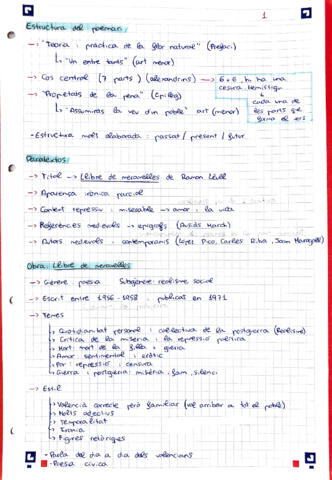 1
Estructura del poemari:
→ "Teoria i pràctica de la flor natural" (Prefaci)
↳ "Un entre tants" (art menor)
→ Cos central (7 parts) (alexandrins) → 6+6, hi ha una
cesura hemistiqui
↓
cada una de
les parts que
forma el vers
→ "Propietats de la pena" (Epíleg)
↳ "Assumiràs la veu d'un poble" art (menor)
- Estructura molt elaborada: passat / present / futur.
Paratextos:
→ Títol → Llibre de meravelles de Ramon Llull
→ Aparença irònica parcial
→ Context repressiu i miserable → amor i la vida
→ Referències medievals → epígrafs (Ausiàs March)
→ Autors medievals i contemporanis (López Picó, Carles Riba, Joan Maragall)
Obra: Llibre de meravelles
→ Gènere: poesia Subgènere: realisme social
→ Escrit entre 1956-1958 i publicat en 1971
→ Temes
↳ Quotidianitat personal i col·lectiva de la postguerra (Realisme)
↳ Crítica de la misèria i la repressió política
↳ Mort: mort de la filla + guerra
↳ Amor: sentimental i eròtic
↳ Por i repressió i censura
↳ Guerra i postguerra: misèria, fam, silenci
→ Estil
↳ Valencià correcte però familiar (vol arribar a tot el poble)
↳ Molts adjectius
↳ Temporalitat
↳ Ironia
↳ Figures retòriques
- Parla del dia a dia dels valencians
- Poesia cívica